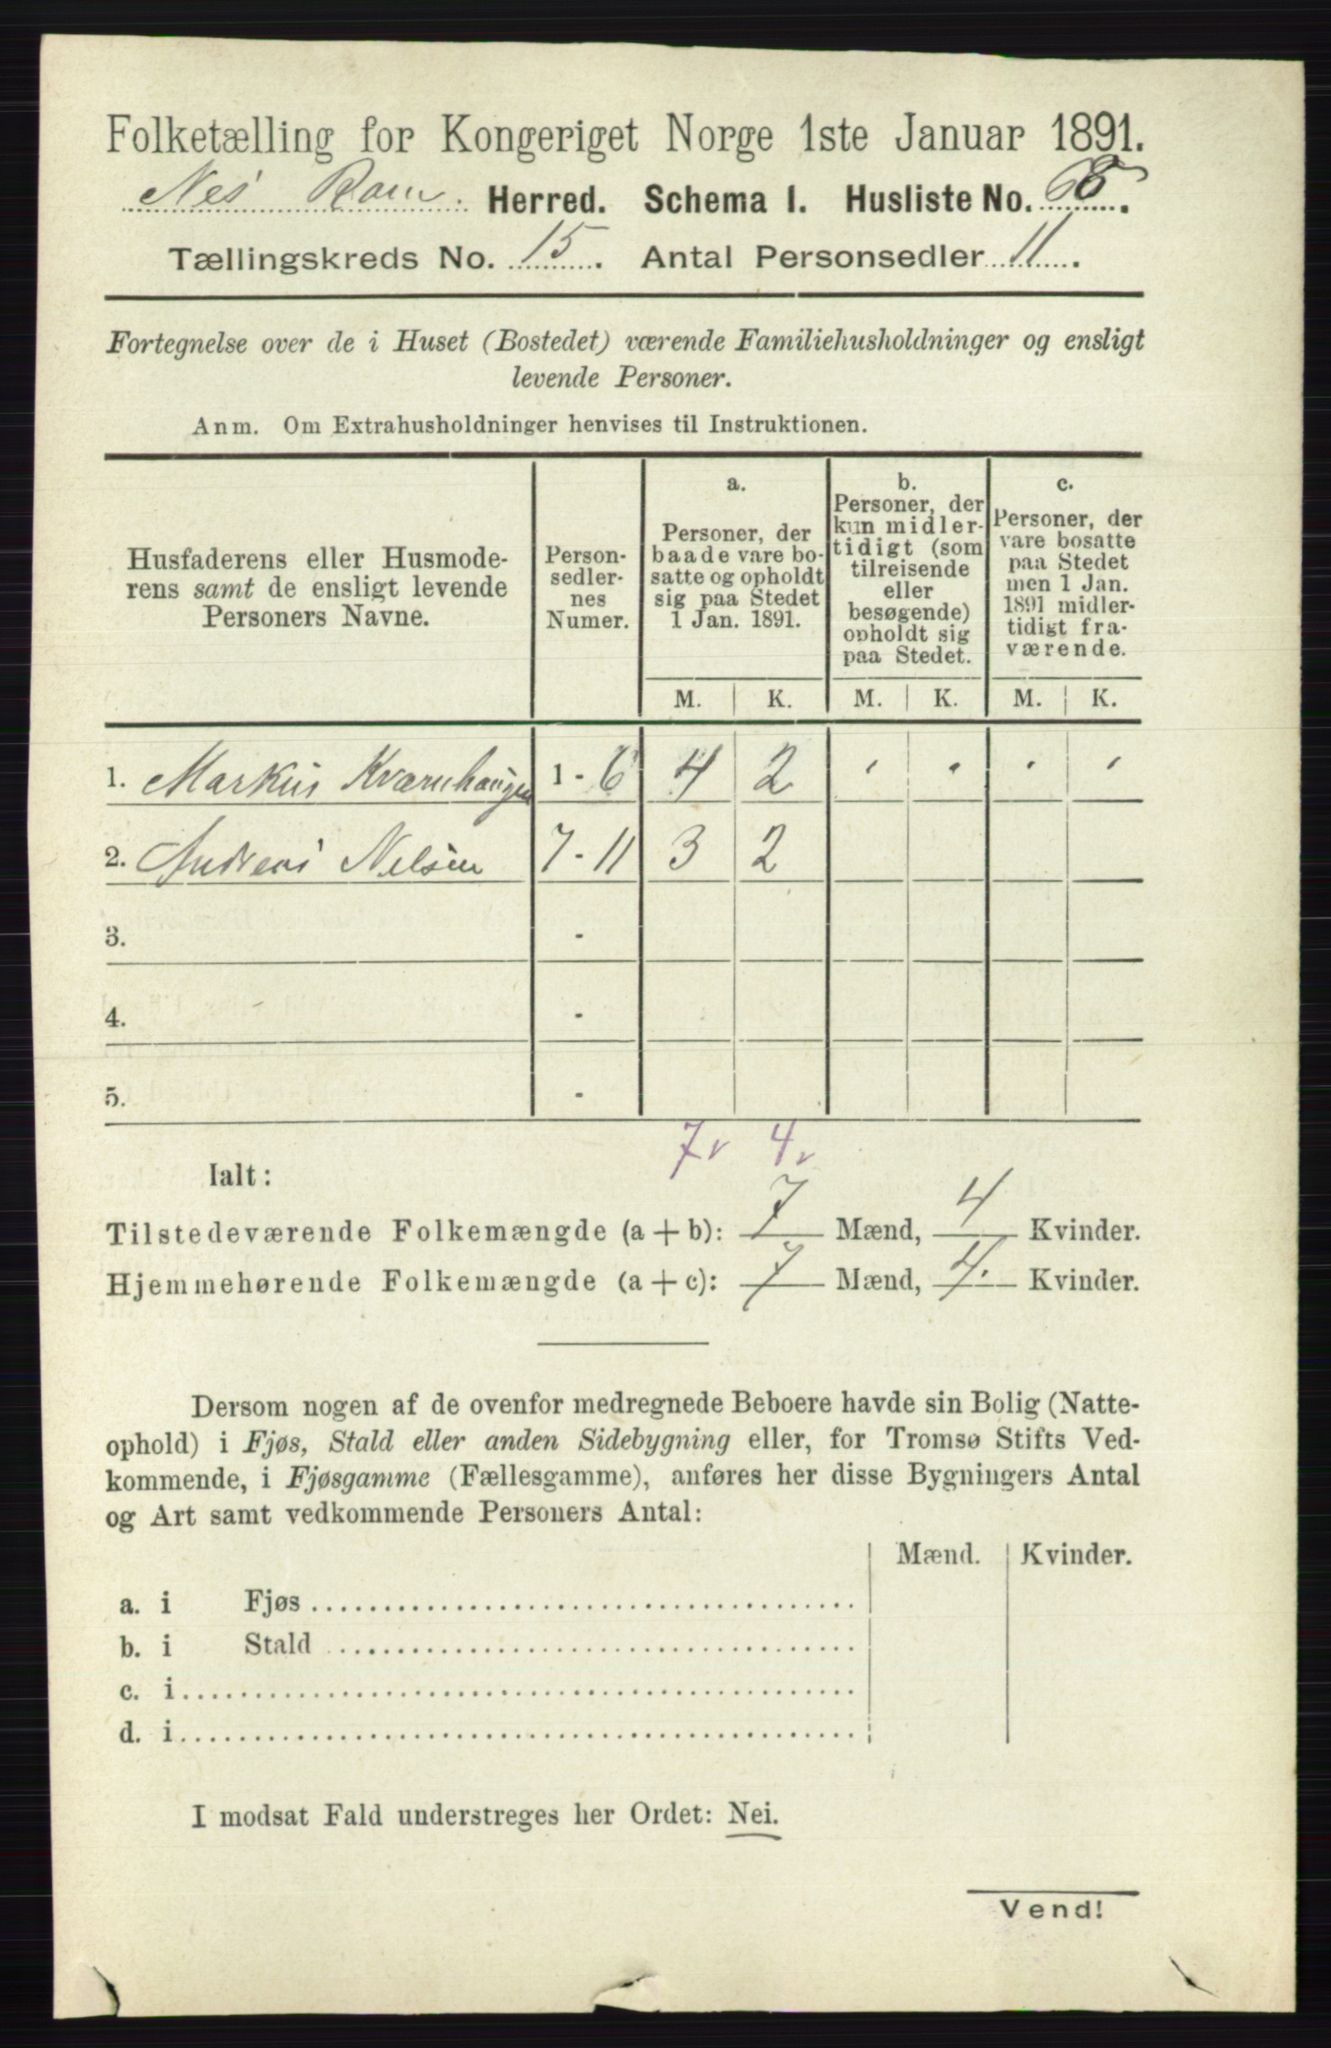 Folketælling for Kongeriget Norge 1ste Januar 1891.
Nes Rom. Herred. Schema I. Husliste No. 68.
Tællingskreds No. 15. Antal Personsedler 11.
Fortegnelse over de i Huset (Bostedet) værende Familiehusholdninger og ensligt
levende Personer.
Anm. Om Extrahusholdninger henvises til Instruktionen.
Husfaderens eller Husmode-
rens samt de ensligt levende
Personers Navne.
Person-
sedler-
nes
Numer.
a.
Personer, der
baade vare bo-
satte og opholdt
sig paa Stedet
1 Jan. 1891.
b.
Personer, der
kun midler-
tidigt (som
tilreisende
eller
besøgende)
opholdt sig
paa Stedet.
c.
Personer, der
vare bosatte
paa Stedet
men 1 Jan.
1891 midler-
tidigt fra-
værende.
M. K. M. K. M. K.
1. Markus Kværnhaugen 1 - 6 4 2
2. Andreas Nelsen 7 - 11 3 2
3. -
4. -
5. -
7 4
Ialt:
Tilstedeværende Folkemængde (a + b): 7 Mænd, 4 Kvinder.
Hjemmehørende Folkemængde (a + c): 7 Mænd, 4. Kvinder.
Dersom nogen af de ovenfor medregnede Beboere havde sin Bolig (Natte-
ophold) i Fjøs, Stald eller anden Sidebygning eller, for Tromsø Stifts Ved-
kommende, i Fjøsgamme (Fællesgamme), anføres her disse Bygningers Antal
og Art samt vedkommende Personers Antal:
Mænd. Kvinder.
a. i Fjøs
b. i Stald
c. i
d. i
I modsat Fald understreges her Ordet: Nei.
Vend!